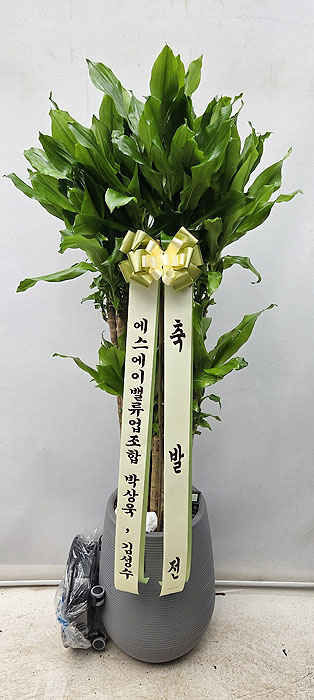 축 발 전
에스에이밸류업조합 박상욱, 김성수